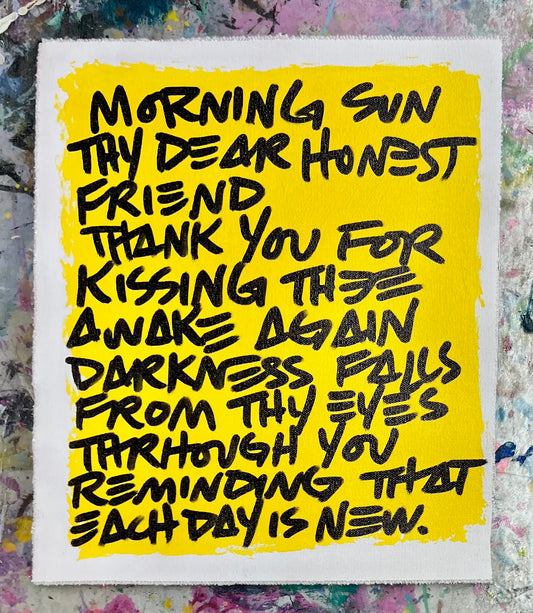 MORNING SUN
THY DEAR HONEST
FRIEND
THANK YOU FOR
KISSING THEE
AWAKE AGAIN
DARKNESS FALLS
FROM THY EYES
THRHOUGH YOU
REMINDING THAT
EACH DAY IS NEW.